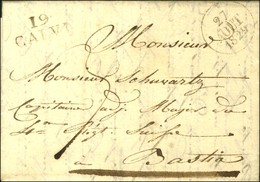 19
CALVI
27
AOUT
1829
Monsieur
Monsieur Schwartz
Capitaine adj. Major du
4me Régt Suisse
à Bastia